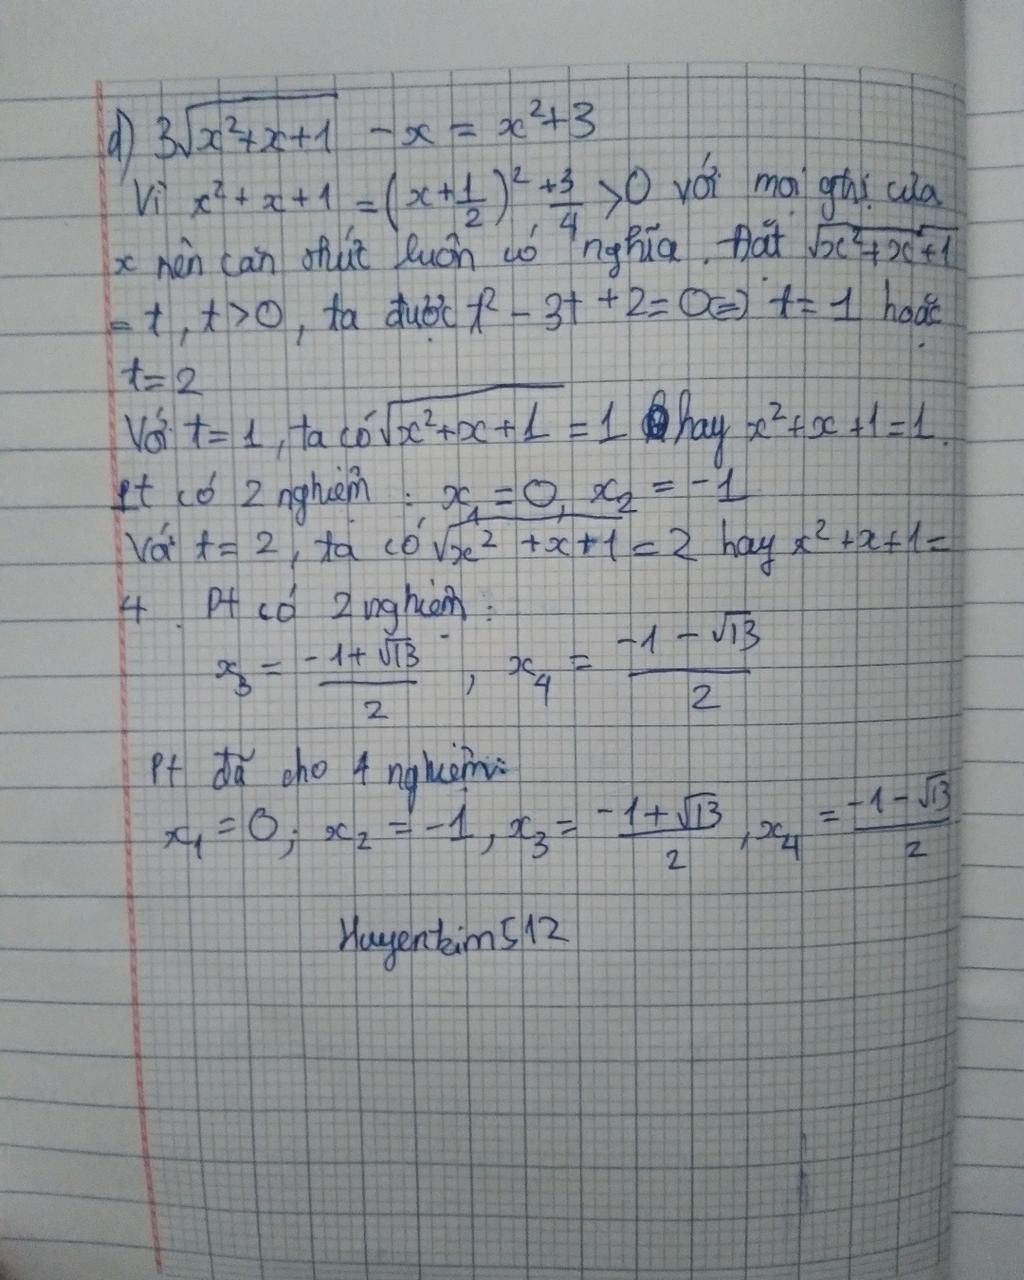 d) 3√(x²+x+1) - x = x²+3
Vì x²+x+1 = (x+1/2)² + 3/4 > 0 với mọi giá trị của
x nên căn thức luôn có nghĩa. Đặt √(x²+x+1)
= t, t>0, ta được t² - 3t + 2 = 0 => t = 1 hoặc
t = 2
Với t = 1, ta có √(x²+x+1) = 1 hay x²+x+1=1.
Pt có 2 nghiệm : x₁ = 0, x₂ = -1
Với t = 2, ta có √(x²+x+1) = 2 hay x²+x+1=
4. Pt có 2 nghiệm :
x₃ = (-1+√13)/2 , x₄ = (-1-√13)/2
Pt đã cho 4 nghiệm:
x₁ = 0; x₂ = -1, x₃ = (-1+√13)/2 , x₄ = (-1-√13)/2
Huyenkim512